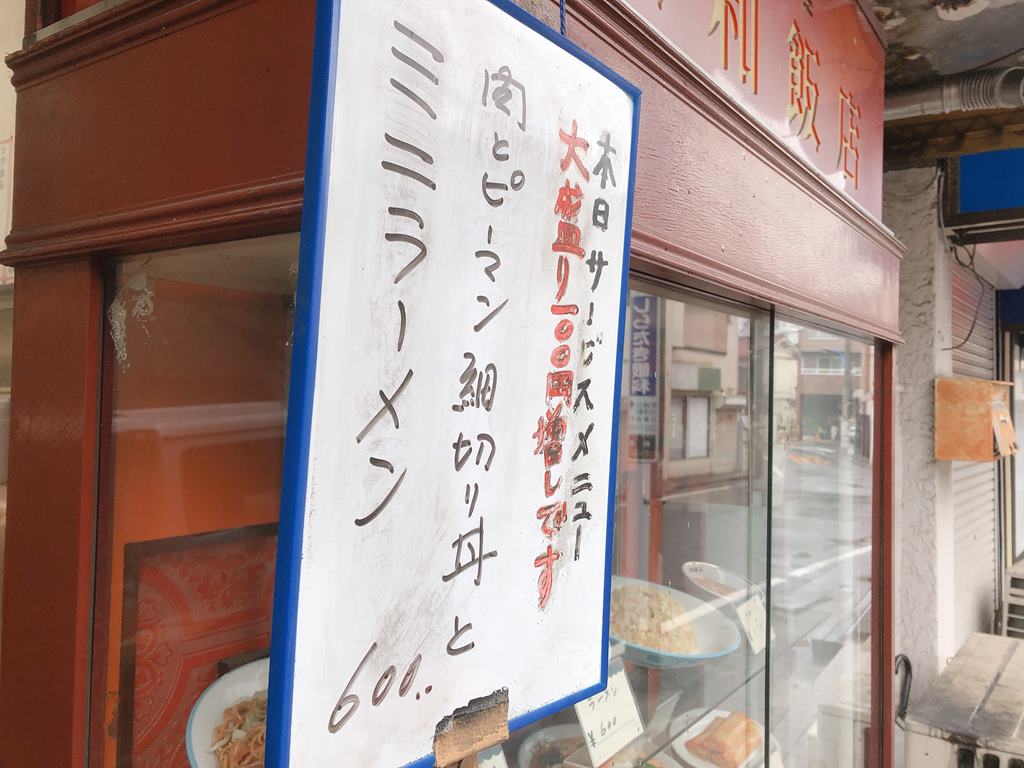 本日サービスメニュー
大盛り一〇〇円増しです
肉とピーマン細切り丼と
ミミミラーメン
600..
利飯店
ラーメン
¥600